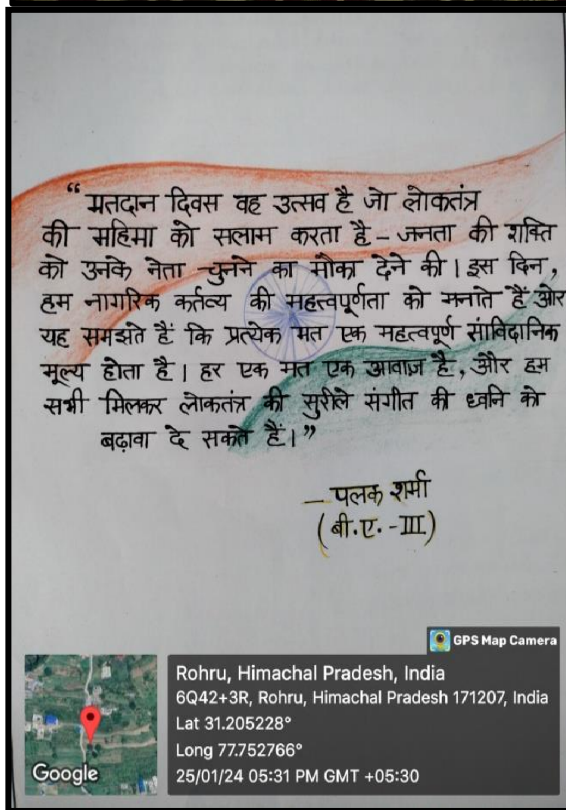 “ मतदान दिवस वह उत्सव है जो लोकतंत्र
की महिमा को सलाम करता है – जनता की शक्ति
को उनके नेता चुनने का मौका देने की। इस दिन,
हम नागरिक कर्तव्य की महत्त्वपूर्णता को मनाते हैं और
यह समझते हैं कि प्रत्येक मत एक महत्वपूर्ण सांविदानिक
मूल्य होता है। हर एक मत एक आवाज़ है, और हम
सभी मिलकर लोकतंत्र की सुरीले संगीत की ध्वनि को
बढ़ावा दे सकते हैं।”
– पलक शर्मा
(बी.ए. -III)
GPS Map Camera
Rohru, Himachal Pradesh, India
6Q42+3R, Rohru, Himachal Pradesh 171207, India
Lat 31.205228°
Long 77.752766°
25/01/24 05:31 PM GMT +05:30
Google